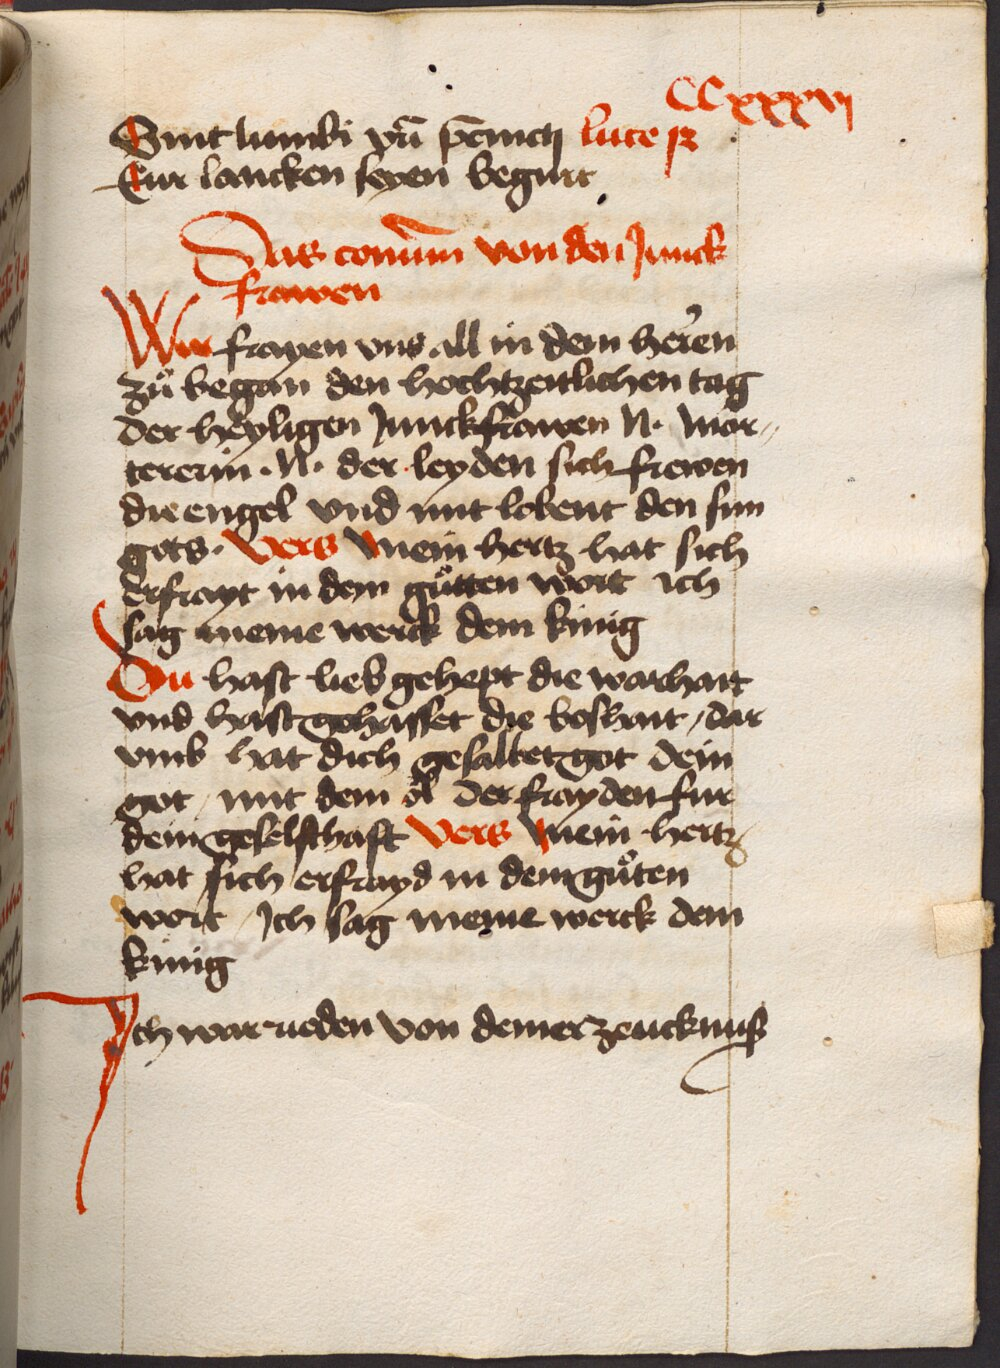 CCxxxvi
Sint lumbi vrī p̄cincti luce xij
Eur lancken seyen begurt
Das comūm von den Junck
frawen
Wir frayen vns all in dem heren
zů began den hochtzeitlichen tag
der heyligen Junckfrawen N. mar-
tererin .N. der leyden sich frewen
die engel vnd mit lobent den sun
gots. Vers Mein hertz hat sich
erfrayt in dem gůtten wort ich
sag meine werck dem kinig
Du hast lieb gehept die warhait
vnd hast gehasset die boshait / dar
vmb hat dich gesalbet got dein
got / mit dem öl der frayden fur
dein geselschaft Vers Mein hertz
hat sich erfrayd in dem gůten
wort / Ich sag meine werck dem
kinig
Ich war reden von deiner zeucknuß